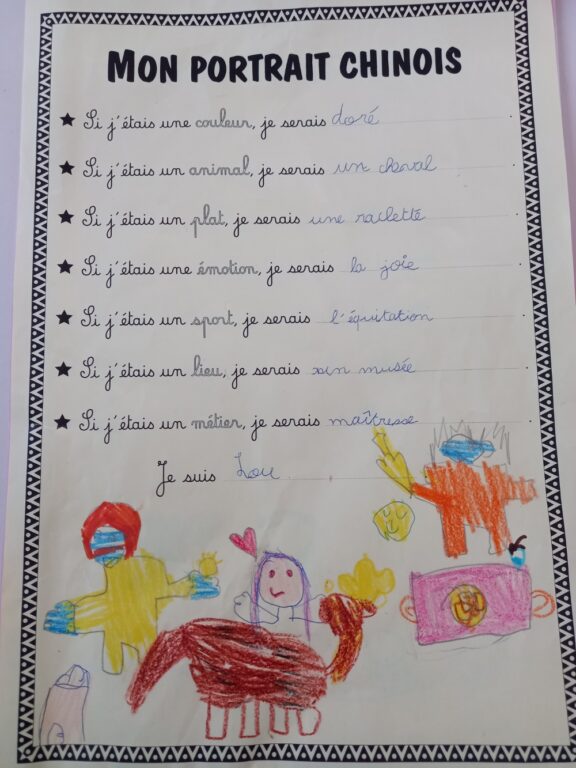 MON PORTRAIT CHINOIS
Si j'étais une couleur, je serais doré
Si j'étais un animal, je serais un cheval
Si j'étais un plat, je serais une raclette
Si j'étais une émotion, je serais la joie
Si j'étais un sport, je serais l'équitation
Si j'étais un lieu, je serais un musée
Si j'étais un métier, je serais maîtresse
Je suis Lou